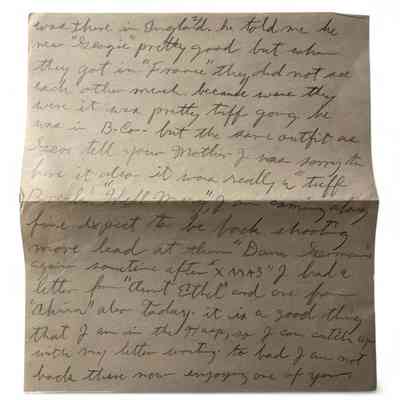 was there in England. he told me he
new "Georgie" pretty good but when
they got in "France" they did not see
each other much because were they
were it was pretty tuff going he
was in B. Co. but the same outfit as
Geo. tell your Mother I was sorry to
hear it also it was really a "tuff
I am coming along
fine expect to be back shooting
more lead at them "Dam Germans"
again sometime after "XMAS" I had a
letter from "Aunt Ethel" and one from
also today. it is a good thing
that I am in the Hosp, so I can catch up
with my letter writing to bad I am not
back there now enjoying one of your